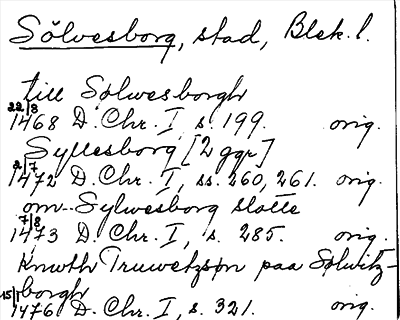 Sölvesborg, stad, Blek. l.
till Sølwesborgh
22/8 1468 D. Chr. I, s. 199. orig.
Syllesborg [2 ggr]
2/7 1472 D. Chr. I, ss. 260, 261. orig.
om Sylwesborg slotte
7/8 1473 D. Chr. I, s. 285. orig.
Knwth Truwetzsøn paa Sølwitz-
borgh
15/1 1476 D. Chr. I, s. 321. orig.